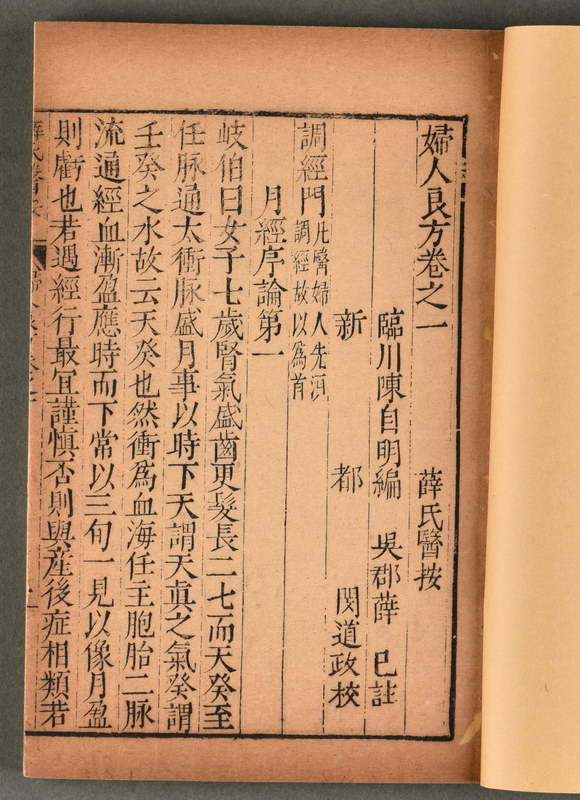 婦人良方卷之一
薛氏醫按
臨川陳自明編 吳郡薛 已註
新 都 閔道政校
調經門 凡醫婦人先須
調經故以爲首
月經序論第一
岐伯曰女子七歲腎氣盛齒更髮長二七而天癸至
任脉通太衝脉盛月事以時下天謂天真之氣癸謂
壬癸之水故云天癸也然衝爲血海任主胞胎二脉
流通經血漸盈應時而下常以三旬一見以像月盈
則虧也若遇經行最宜謹慎否則與産後症相類若